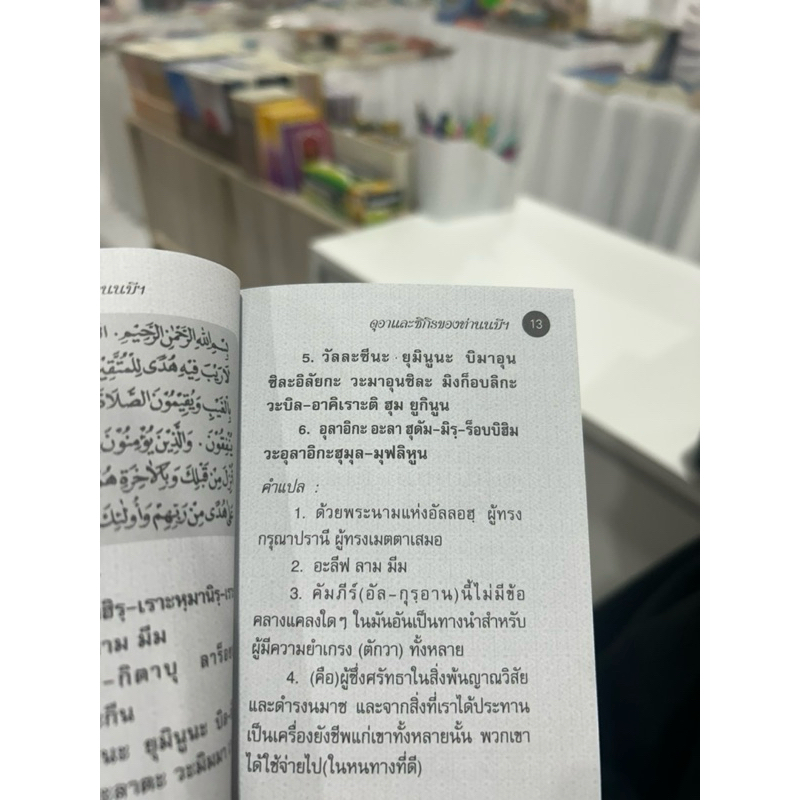 นนบีฯ
بِسْمِ اللهِ الرَّحْمٰنِ الرَّحِيْمِ .
لَارَيْبَ فِيْهِ هُدًى لِلْمُتَّقِيْنَ
بِالْغَيْبِ وَيُقِيْمُونَ الصَّلَاةَ
يُنْفِقُونَ . وَالَّذِيْنَ يُؤْمِنُوْنَ
أُنْزِلَ مِنْ قَبْلِكَ وَبِالْآخِرَةِ هُمْ
عَلَى هُدًى مِنْ رَبِّهِمْ وَأُولٰئِكَ
ฮิรฺ-เราะหฺมานิรฺ-เร
าม มีม
-กิตาบุ ลาร็อย
ะกีน
นะ ยุมินูนะ บิล
ะลาตะ วะมิมมา
ดุอาและซิกิรของท่านนบีฯ 13
5. วัลละซีนะ ยุมินูนะ บิมาอุน
ซิละอิลัยกะ วะมาอุนซิละ มิงก็อบลิกะ
วะบิล-อาคิเราะติ ฮุม ยูกินูน
6. อุลาอิกะ อะลา ฮุดัม-มิรฺ-ร็อบบิฮิม
วะอุลาอิกะฮุมุล-มุฟลิหูน
คำแปล :
1. ด้วยพระนามแห่งอัลลอฮฺ ผู้ทรง
กรุณาปรานี ผู้ทรงเมตตาเสมอ
2. อะลีฟ ลาม มีม
3. คัมภีร์(อัล-กุรฺอาน)นี้ไม่มีข้อ
คลางแคลงใดๆ ในมันอันเป็นทางนำสำหรับ
ผู้มีความยำเกรง (ตักวา) ทั้งหลาย
4. (คือ)ผู้ซึ่งศรัทธาในสิ่งพ้นญาณวิสัย
และดำรงนมาซ และจากสิ่งที่เราได้ประทาน
เป็นเครื่องยังชีพแก่เขาทั้งหลายนั้น พวกเขา
ได้ใช้จ่ายไป(ในหนทางที่ดี)